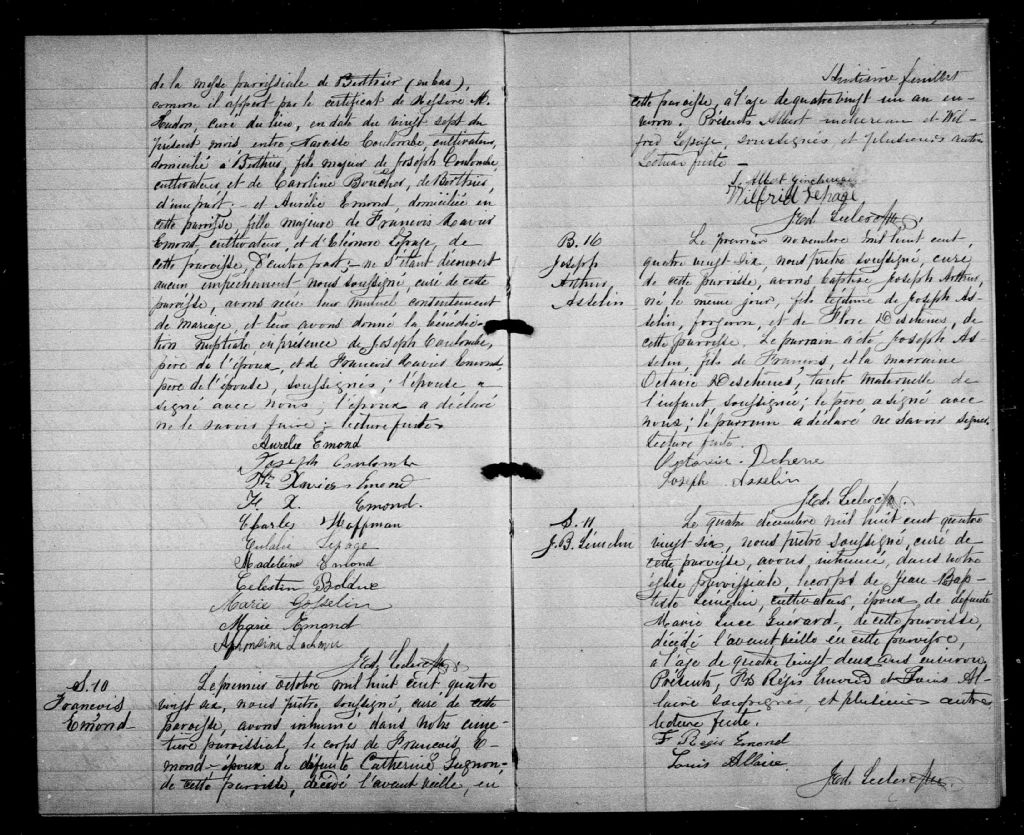 de la messe paroissiale de Berthier (en bas),
comme il appert par le certificat de Messire M.
Hudon, curé du lieu, en date du vingt sept du
présent mois, entre Narcisse Coulombe, cultivateur,
domicilié à Berthier, fils majeur de Joseph Coulombe
cultivateur, et de Caroline Boucher, de Berthier,
d'une part - et Aurélie Emond, domiciliée en
cette paroisse, fille majeure de François Xavier
Emond, cultivateur, et d'Eléonore Lepage, de
cette paroisse, d'autre part; - ne s'étant découvert
aucun empêchement nous soussigné curé de cette
paroisse, avons reçu leur mutuel consentement
de mariage, et leur avons donné la bénédic-
tion nuptiale en présence de Joseph Coulombe,
père de l'époux, et de Francois Xavier Emond,
père de l'épouse, soussignés; l'épouse a
signé avec nous; l'époux a déclaré
ne le savoir faire; lecture faite
Aurélie Emond
Joseph Coulombe
Frs Xavier Emond
F. X. Emond.
Charles Hoffman
Eulalie Lepage
Madeleine Emond
Celestin Bolduc
Marie Gosselin
Marie Emond
JEd. Leclerc Ptre
S. 10
Francois
Emond
Le premier octobre mil huit cent quatre
vingt six, nous prêtre, soussigné, curé de cette
paroisse, avons inhumé dans notre cime-
tière paroissial, le corps de Francois E-
mond époux de défunte Catherine
de cette paroisse, décédé l'avant veille, en
Huitième feuillet
cette paroisse, a l'age de quatre vingt un an en-
viron. Présents Albert et Wil-
fred Lepage, soussignés et plusieurs autres
Lecture faite -
J. Albert
Wilfrid Lepage
JEd. Leclerc Ptre.
B. 16
Joseph
Arthur
Asselin
Le premier novembre mil huit cent,
quatre vingt six, nous prêtre soussigné, curé
de cette paroisse, avons baptisé Joseph Arthur,
né le même jour, fils légitime de Joseph As-
selin, forgeron, et de Flore Deschènes, de
cette paroisse. Le parrain a été Joseph As-
selin, fils de François, et la marraine
Octavie Deschènes, tante maternelle de
l'enfant soussignée; le père a signé avec
nous; le parrain a déclaré ne savoir signer.
Lecture faite.
Octavie Dechene
Joseph Asselin
JEd. Leclerc Ptr.
S. 11
J. B. Lémelin
Le quatre decembre mil huit cent quatre
vingt six, nous prêtre soussigné, curé de
cette paroisse, avons inhumé, dans notre
église paroissiale, le corps de Jean Bap-
tiste Lémelin, cultivateur, époux de défunte
Marie Luce Guérard, de cette paroisse,
décédé l'avant veille en cette paroisse,
a l'âge de quatre vingt-deux ans environ
Présents, Frs Régis Emond et Louis Al-
laire soussignés et plusieurs autres
lecture faite.
F Régis Emond
Louis Allaire
JEd. Leclerc Ptre.